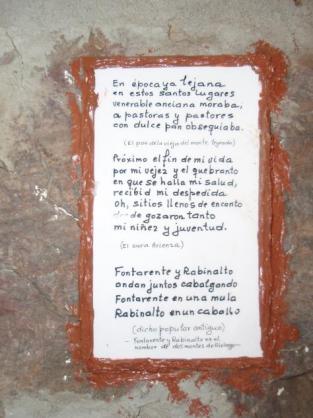 En época ya lejana
en estos santos lugares
venerable anciana moraba,
a pastoras y pastores
con dulce pan obsequiaba.
(El pan de la vieja del monte, leyenda)
Próximo el fin de mi vida
por mi vejez y el quebranto
en que se halla mi salud,
recibid mi despedida
oh, sitios llenos de encanto
de gozaron tanto
mi niñez y juventud.
(El cura
Fontarente y Rabinalto
andan juntos cabalgando
Fontarente en una mula
Rabinalto en un caballo
(dicho popular antiguo)
- Fontarente y Rabinalto es el
nombre de dos montes de